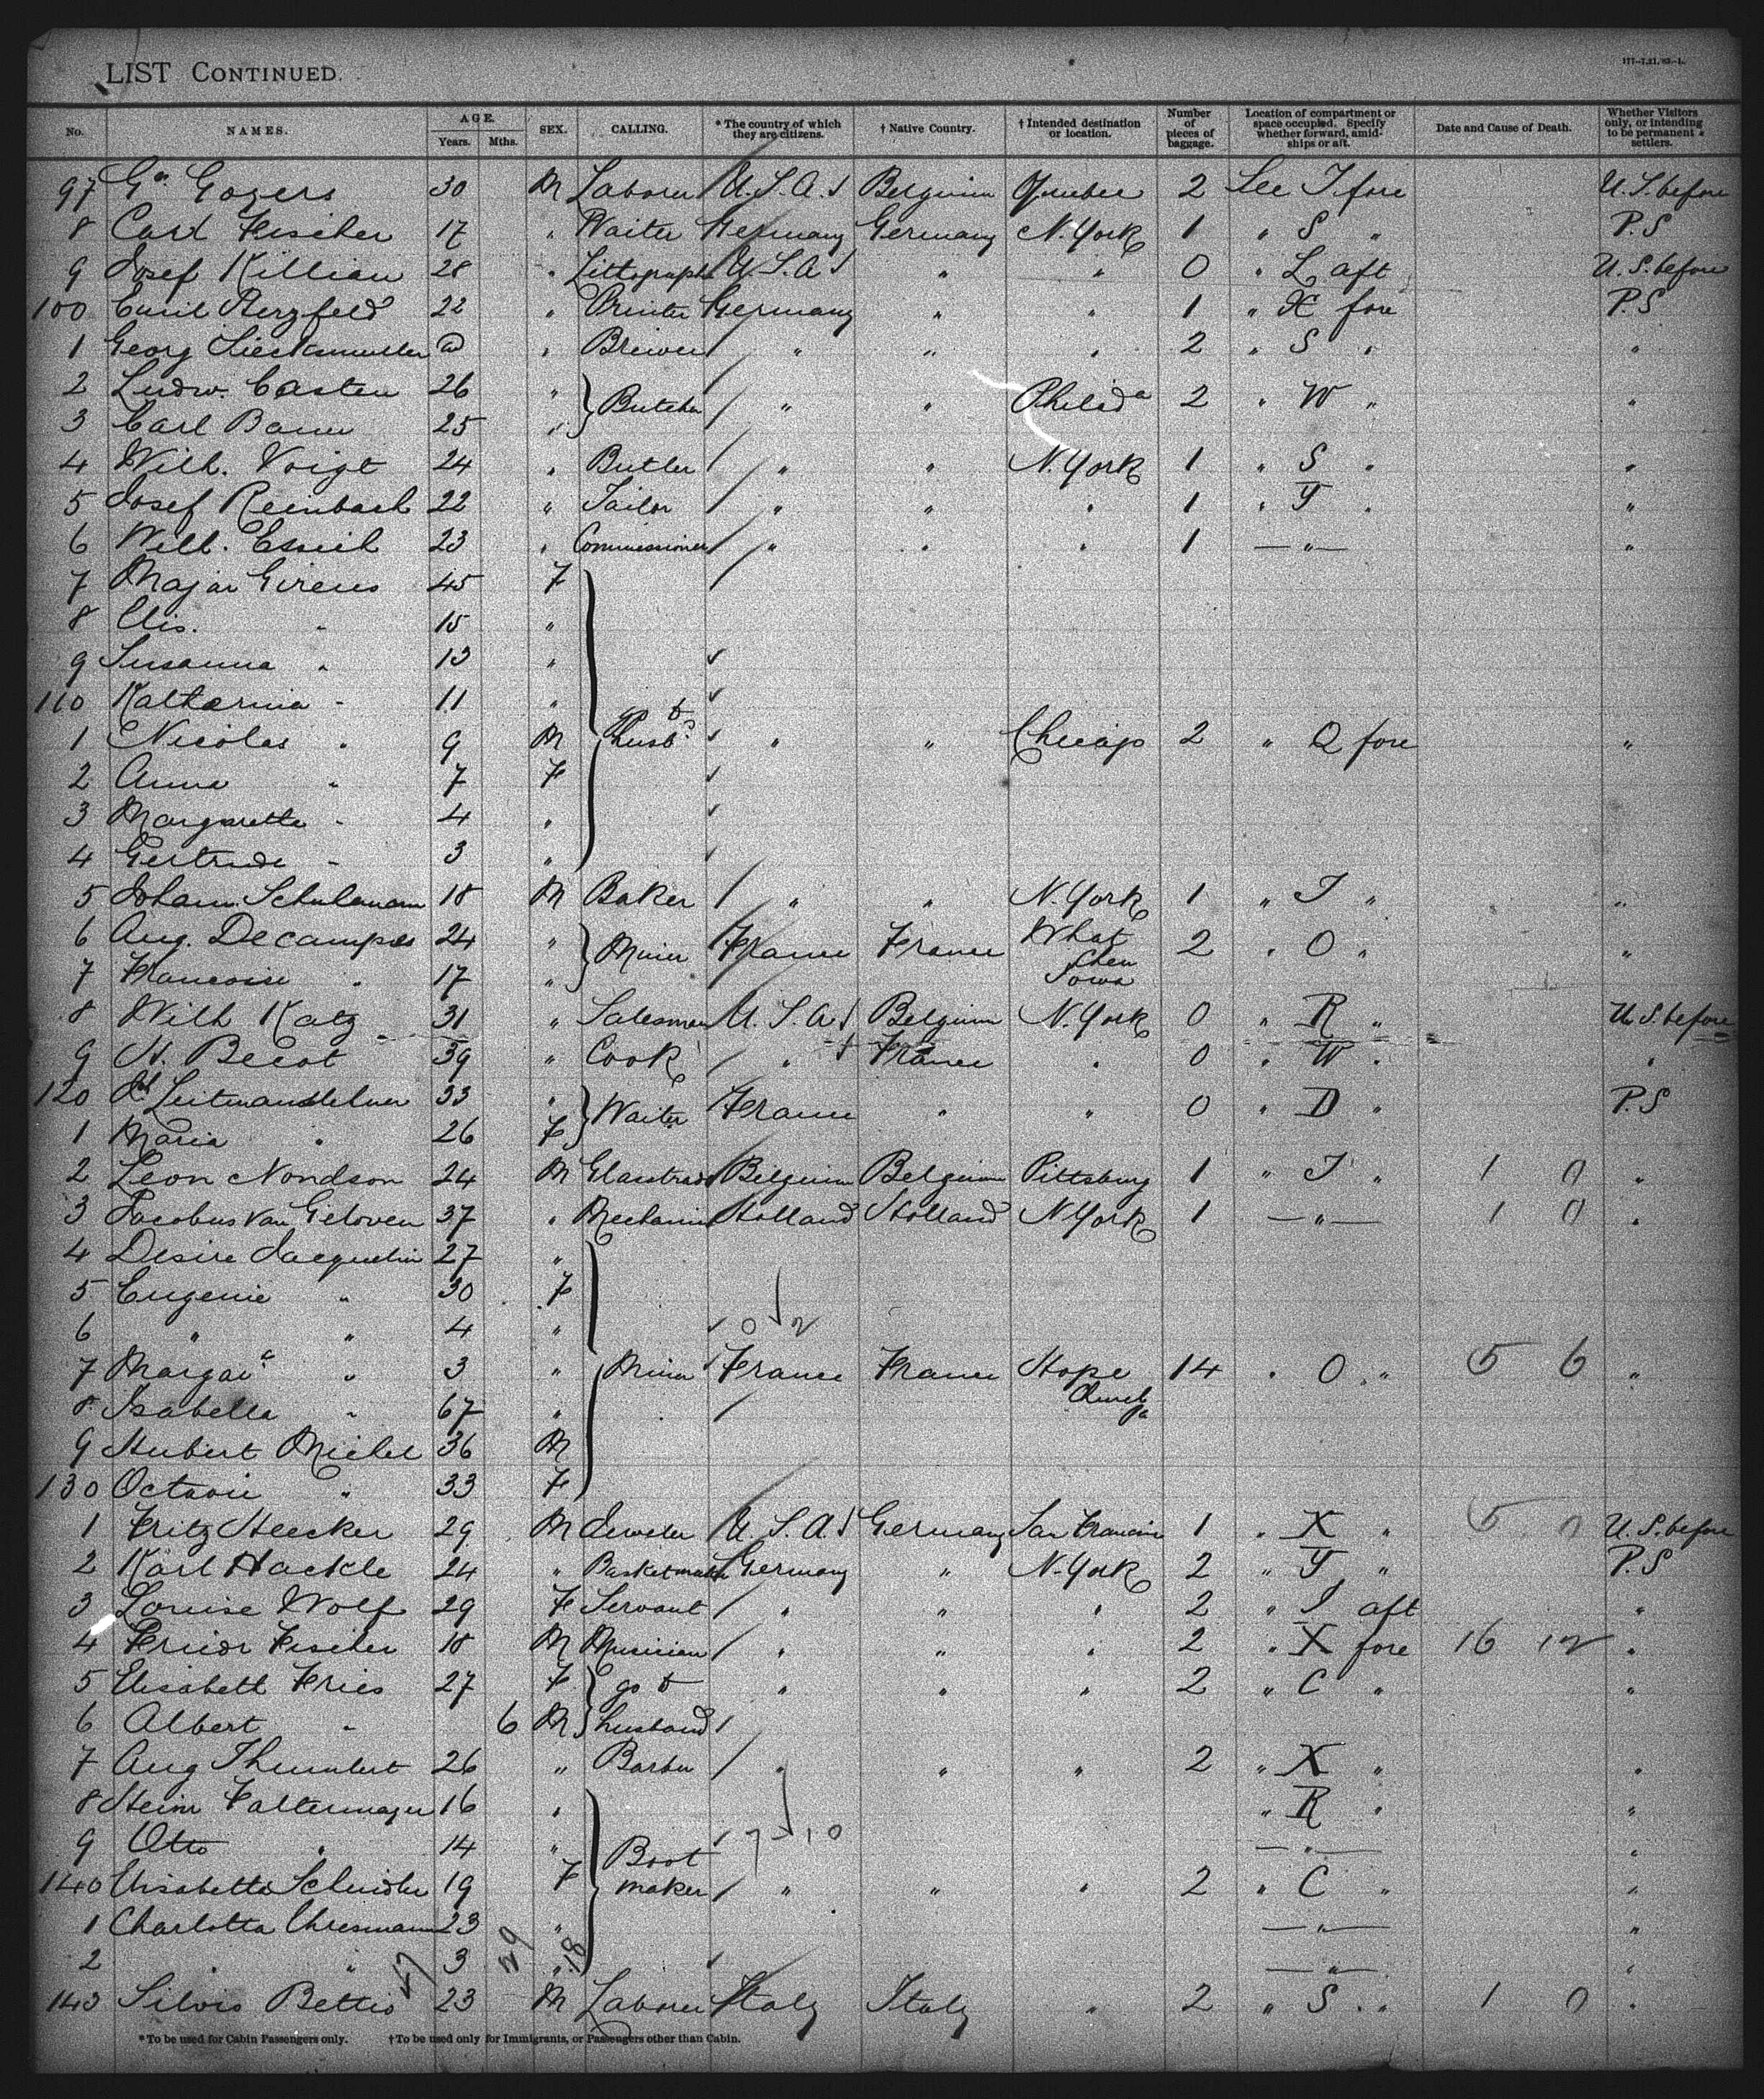 LIST CONTINUED.
177-7,21,'93-1.
No. NAMES. AGE. Years. Mths. SEX. CALLING. * The country of which they are citizens. † Native Country. † Intended destination or location. Number of pieces of baggage. Location of compartment or space occupied. Specify whether forward, amidships or aft. Date and Cause of Death. Whether Visitors only, or intending to be permanent settlers.
97 Gozers 30 M Laborer U.S.A. Belgium Quebec 2 See T fore U.S. before
8 Carl Fischer 17 " Waiter Germany Germany N. York 1 " S " P.S
9 Josef Killian 28 " Lithograph U.S.A " " 0 " L aft U.S. before
100 Emil Herzfeld 22 " Printer Germany " " 1 " X fore P.S
1 Georg " Brewer " " " 2 " S " "
2 Ludw. Casten 26 "
Butcher " " Philad a 2 " W " "
3 Carl Baum 25 "
4 Wilh. Voigt 24 " Butler " " N. York 1 " S " "
5 Josef Reinbach 22 " Tailor " " " 1 " Y " "
6 Wilh. 23 " Commissioner " " " 1 — " — "
7 Girens 45 F
8 Elis. " 15 "
9 Susanna " 13 "
110 Katharina " 11 "
go to
1 Nicolas " 9 M husb. " " Chicago 2 " Q fore "
2 Anna " 7 F
3 Margaretta " 4 "
4 Gertrude " 3 "
5 Johann Schulemann 18 M Baker " " N. York 1 " T " "
6 Aug. Decamps 24 "
Miner France France What Cheer Iowa 2 " O " "
7 Francoise " 17 "
8 Wilh Katz 31 " Salesman U.S.A Belgium N. York 0 " R " U.S. before
9 H. Becot 39 " Cook " France " 0 " W " "
120 33 "
Waiter France " " 0 " D " P.S
1 Maria " 26 F
2 Leon Nondson 24 M Belgium Belgium Pittsburg 1 " T " 1 0 "
3 Jacobus Van Geloven 37 " Mechanic Holland Holland N York 1 — " — 1 0 "
4 Desire Jacquelin 27 "
5 Eugenie " 30 F
6 " " 4 " 0 2
7 " 3 " Miner France France Hope Church Pa 14 " O " 5 6 "
8 Isabella " 67 "
9 Hubert Michel 36 M
130 Octavie " 33 F
1 Fritz Heecker 29 M Jeweler U.S.A Germany San Francisco 1 " X " 5 0 U.S. before
2 Karl Hackle 24 " Basketmaker Germany " N. York 2 " Y " P.S
3 Louise Wolf 29 F Servant " " " 2 " I aft "
4 Friedr Fischer 18 M Musician " " " 2 " X fore 16 12 "
5 Elisabeth Fries 27 F go to " " " 2 " C " "
6 Albert " 6 M husband
7 Aug Thumbert 26 " Barber " " " 2 " X " "
8 Heinr Faltermayer 16 " " R " "
9 Otto " 14 " 7 10 — " — "
Boot
140 Elisabetta Schindler 19 F maker " " " 2 " C " "
1 Charlotta 23 " — " — "
2 " " 3 " — " — "
29 18
143 Silvio Bettio 23 M Laborer Italy Italy " 2 " S " " 1 0 "
* To be used for Cabin Passengers only. † To be used only for Immigrants, or Passengers other than Cabin.